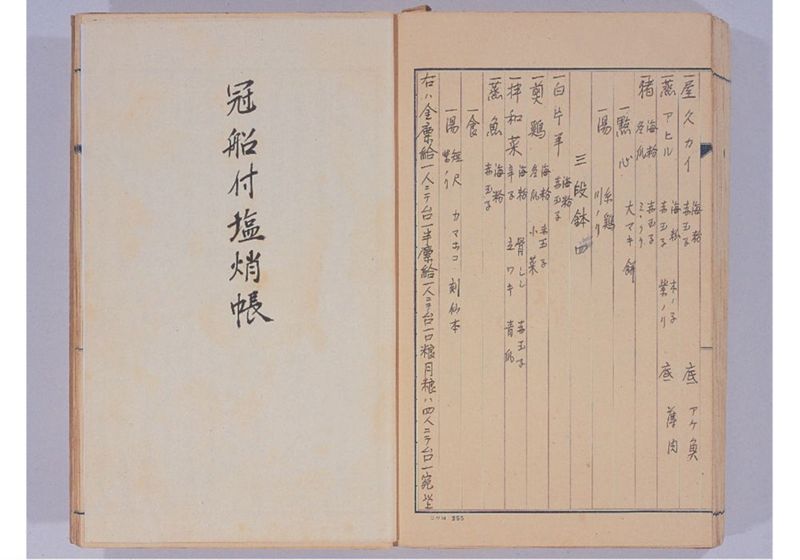 一屋久カイ 海粉 赤玉子 木ノ子 底 アケ魚
一蒸アヒル 海粉 赤玉子 紫ノリ 底 薄肉
一猪 海粉 冬瓜 赤玉子
一點心 大マキ餅
一湯 糸鶏 川ノリ
三段鉢四
一白片羊 海粉 赤玉子
一奠鶏 海粉 冬瓜 赤玉子 小菜
一拌和菜 海粉 辛子 骨しし 立ワキ 赤玉子 青瓜
一蒸魚 海粉 赤玉子
一食
一湯 短尺 紫ノリ カマホコ 刻仙本
右ハ全廩給一人ニテ台一半廩給一人ニテ台一口粮月粮ハ四人ニテ台一宛坐
コクヨ 255
冠船付塩焇帳